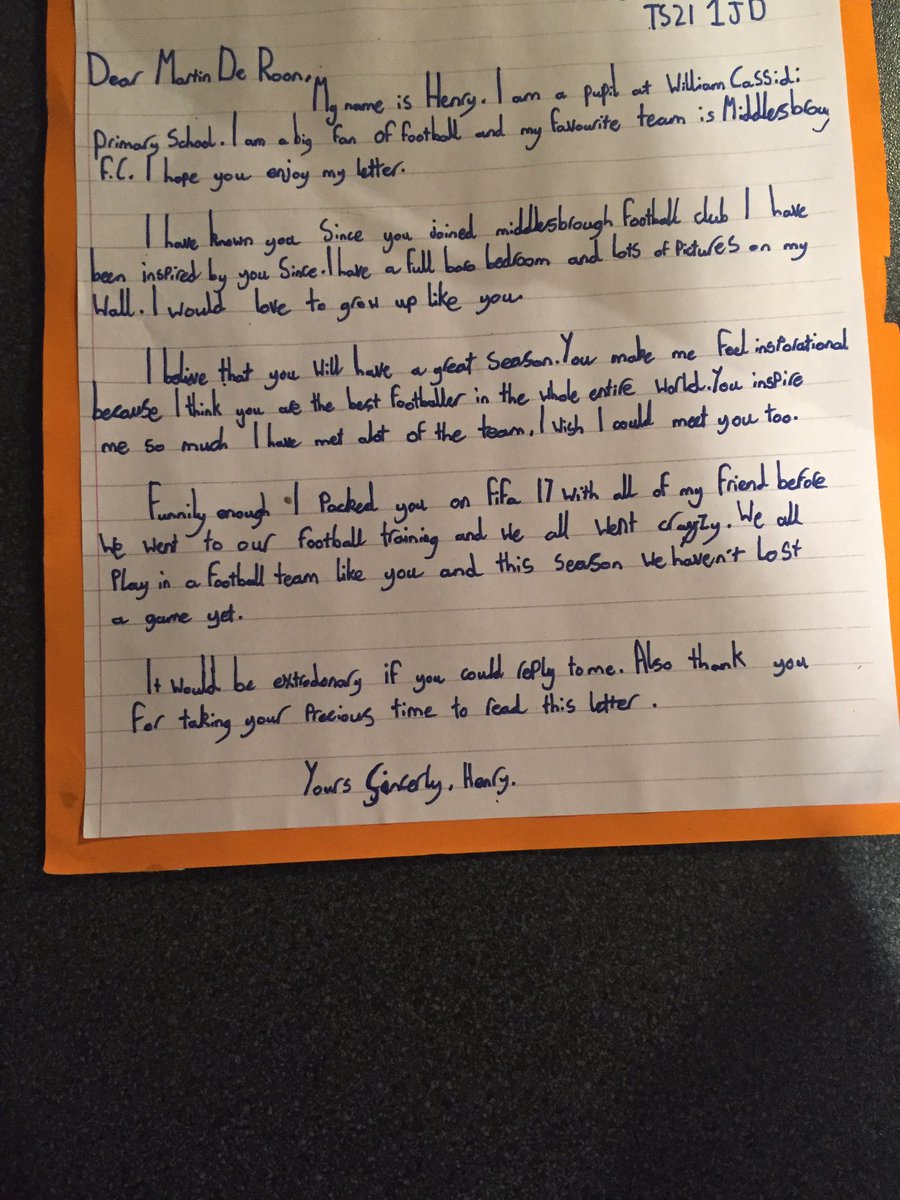 TS21 1JD
Dear Martin De Roon,
My name is Henry. I am a pupil at William Cassidi
primary School. I am a big fan of football and my favourite team is Middlesbroy
F.C. I hope you enjoy my letter.
I have known you Since you Joined middlesbrough Football club I have
been inspired by you Since. I have a full boro bedroom and lots of Pictures on my
Wall. I would love to grow up like you.
I believe that you Will have a great Season. You make me Feel insporational
because I think you are the best Footballer in the whole entire World. You inspire
me so much I have met alot of the team. I wish I could meet you too.
Funnily enough I Packed you on Fifa 17 With all of my Friend before
We went to our football training and We all went crazy. We all
Play in a Football team like you and this Season We haven't Lost
a game yet.
It would be extrodonary if you could reply to me. Also thank you
For taking your Precious time to read this letter.
Yours Sincerly, Henry.